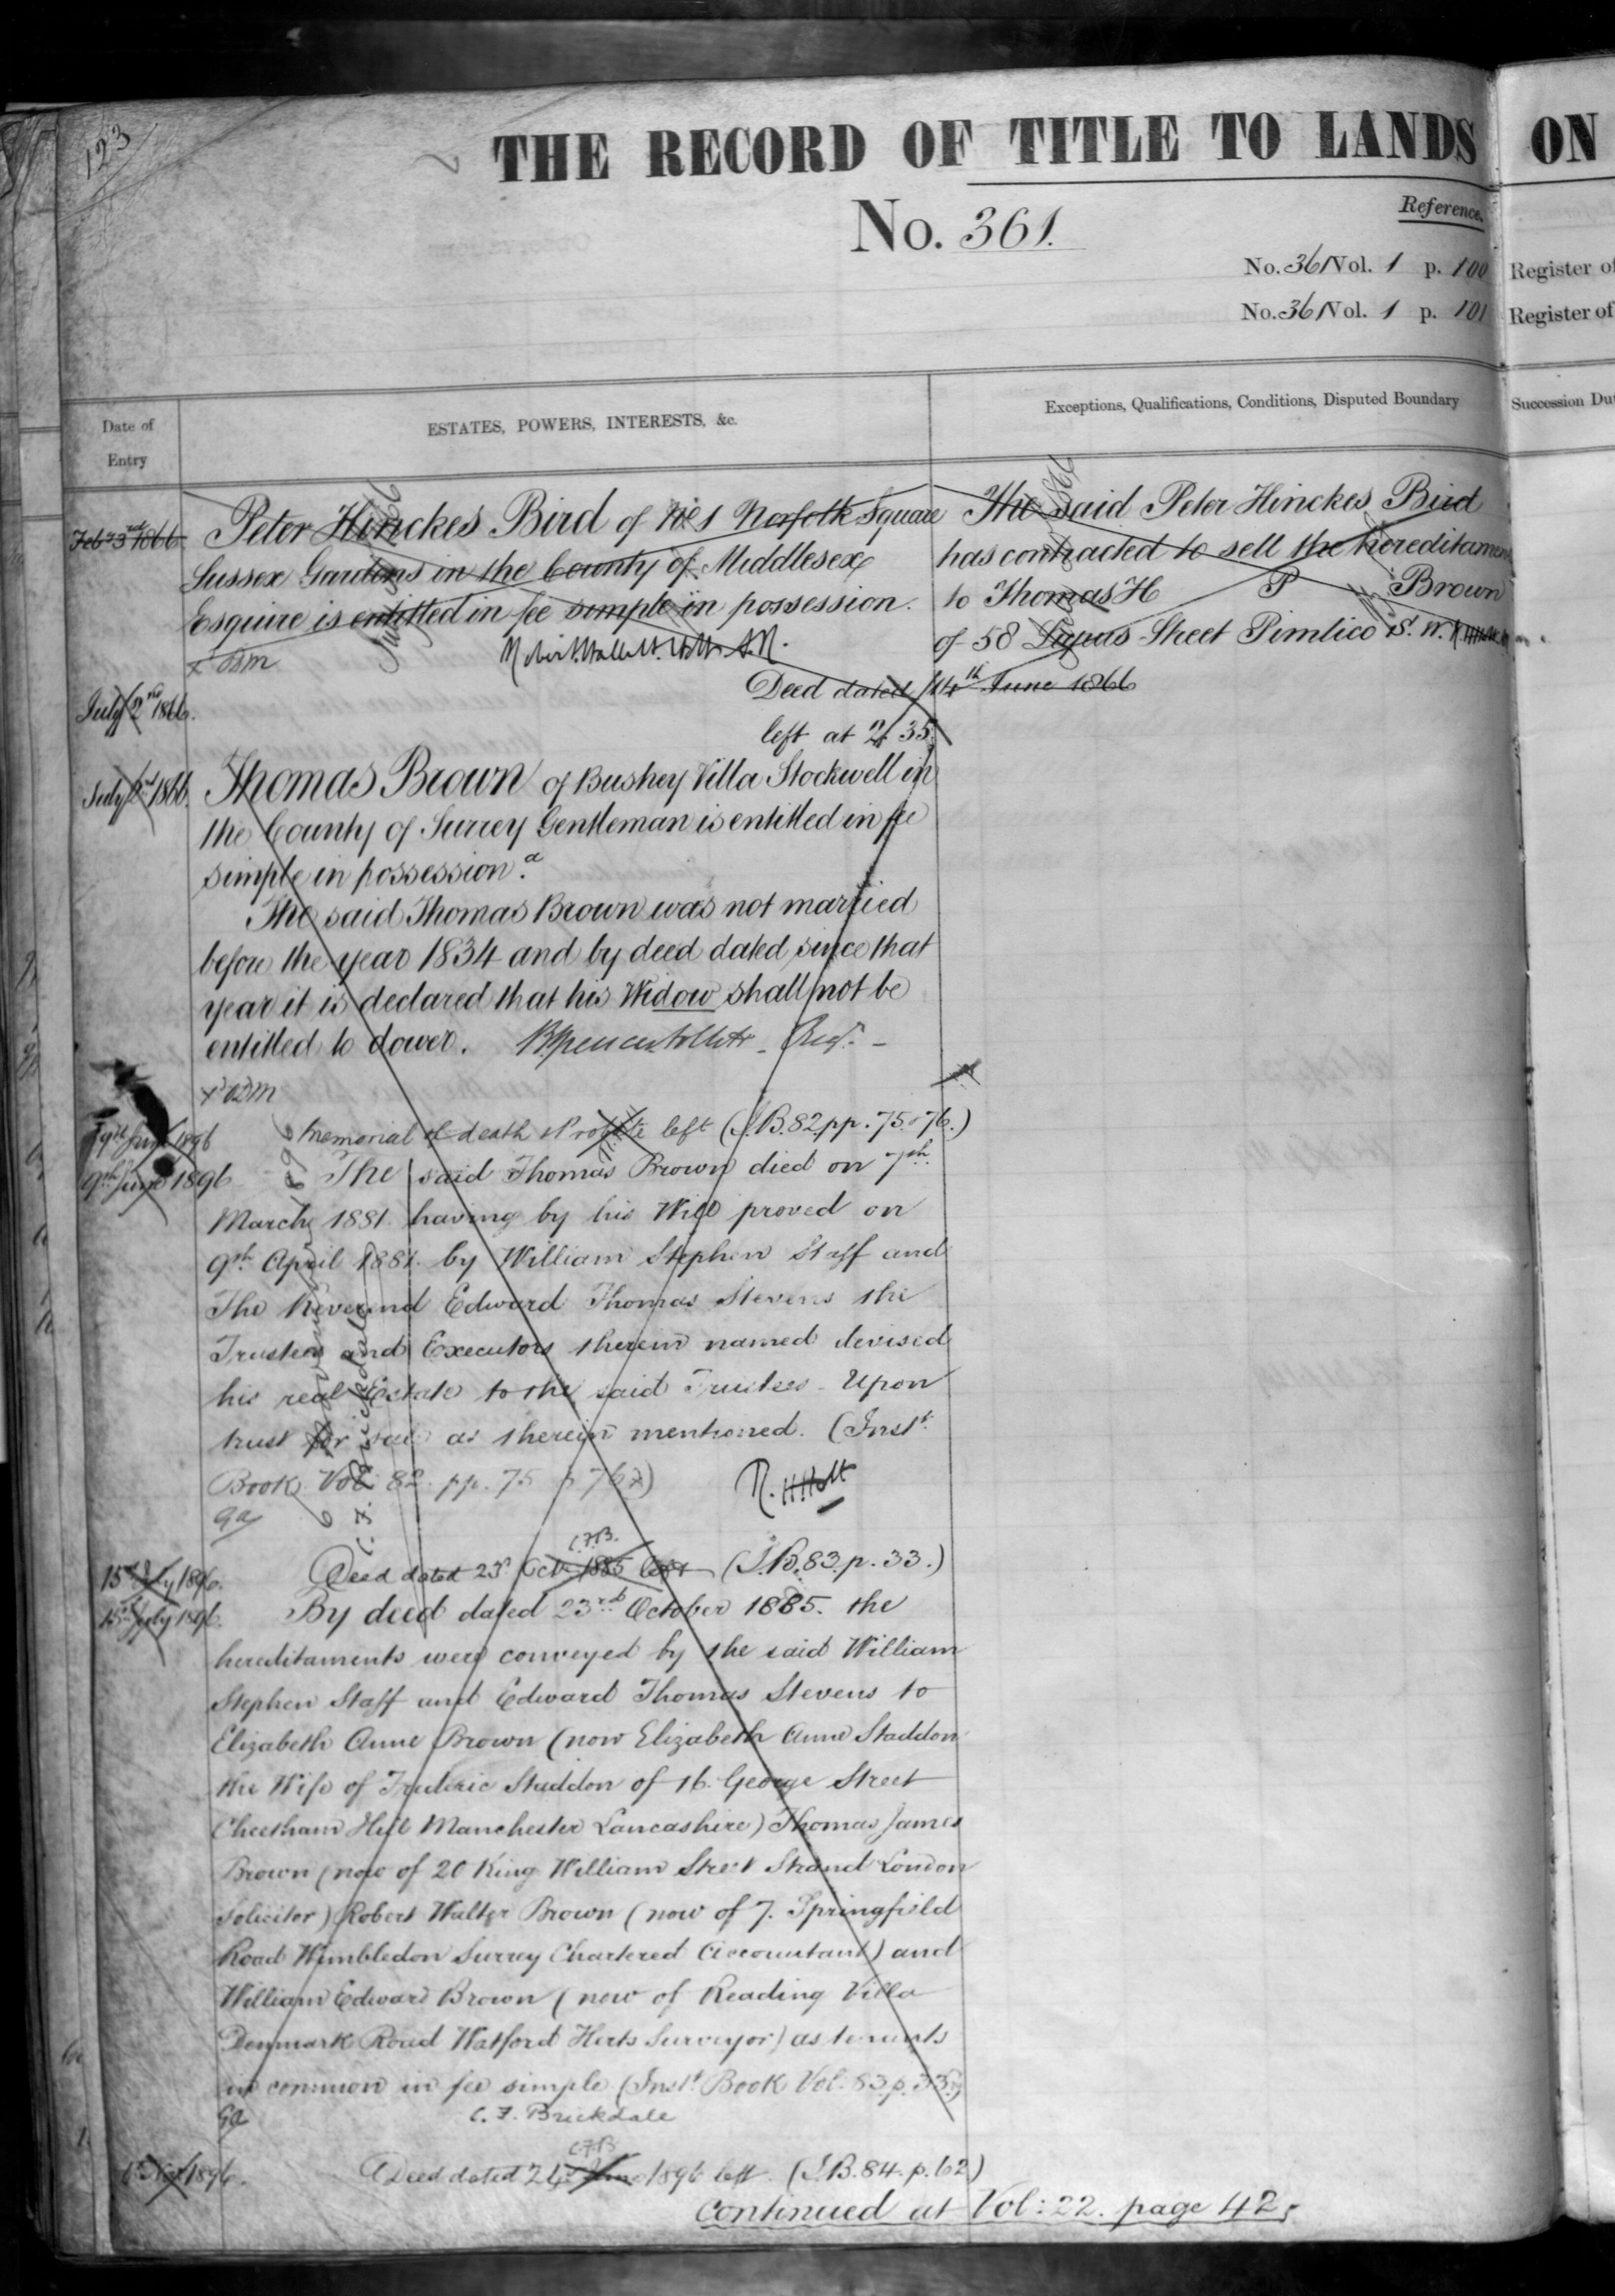 123
THE RECORD OF TITLE TO LANDS ON
No. 361.
Reference.
No. 361 Vol. 1 p. 100 Register of
No. 361 Vol. 1 p. 101 Register of
Date of Entry
ESTATES, POWERS, INTERESTS, &c.
Exceptions, Qualifications, Conditions, Disputed Boundary
Succession Du
Feb 23rd 1866
Peter Hinckes Bird of No 1 Norfolk Square
Sussex Gardens in the County of Middlesex
Esquire is entitled in fee simple in possession.
The said Peter Hinckes Bird
has contracted to sell the hereditamen
to Thomas H P Brown
of 58 Lupus Street Pimlico S. W.
July 2nd 1866.
Deed dated 14th June 1866
left at 2.35
July 2nd 1866.
Thomas Brown of Bushey Villa Stockwell in
the County of Surrey Gentleman is entitled in fee
simple in possession.a
The said Thomas Brown was not married
before the year 1834 and by deed dated since that
year it is declared that his Widow shall not be
entitled to dower.
9th June 1896
Memorial of death & Probate left (I.B. 82 pp. 75 & 76.)
9th June 1896
The said Thomas Brown died on 7th
March 1881 having by his Will proved on
9th April 1881 by William Stephen Staff and
The Reverend Edward Thomas Stevens the
Trustees and Executors therein named devised
his real Estate to the said Trustees Upon
trust for sale as therein mentioned. (Inst.
Book Vol. 82. pp. 75 & 76)
R. H. Holt
ga
C.F.B.
15th July 1896.
Deed dated 23rd Oct. 1885 left (I.B. 83. p. 33.)
15th July 1896.
By deed dated 23rd October 1885. the
hereditaments were conveyed by the said William
Stephen Staff and Edward Thomas Stevens to
Elizabeth Anne Brown (now Elizabeth Anne Staddon
the Wife of Frederic Staddon of 16. George Street
Cheetham Hill Manchester Lancashire) Thomas James
Brown (now of 20 King William Street Strand London
Solicitor) Robert Walter Brown (now of 7. Springfield
Road Wimbledon Surrey Chartered Accountant) and
William Edward Brown (now of Reading Villa
Denmark Road Watford Herts Surveyor) as tenants
in common in fee simple (Inst. Book Vol. 83. p. 33)
ga
C. F. Brickdale
C.F.B.
Nov 1896.
Deed dated 24th June 1896 left. (I.B. 84. p. 62)
Continued at Vol: 22. page 42.